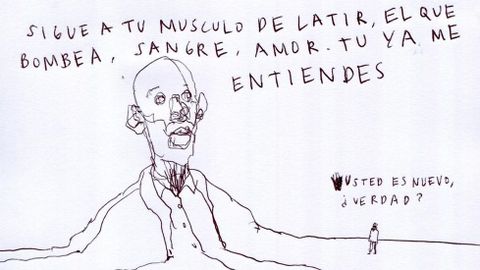 SIGUE A TU MUSCULO DE LATIR, EL QUE
BOMBEA, SANGRE, AMOR. TU YA ME
ENTIENDES
USTED ES NUEVO,
¿VERDAD?